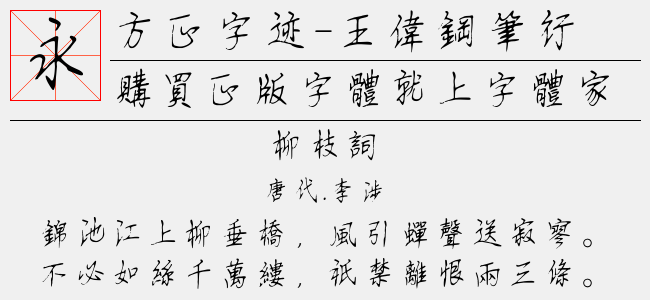 永
方正字迹-王偉鋼筆行
購買正版字體就上字體家
柳枝詞
唐代.李涉
錦池江上柳垂橋，風引蟬聲送寂寥。
不必如絲千萬縷，祇禁離恨兩三條。